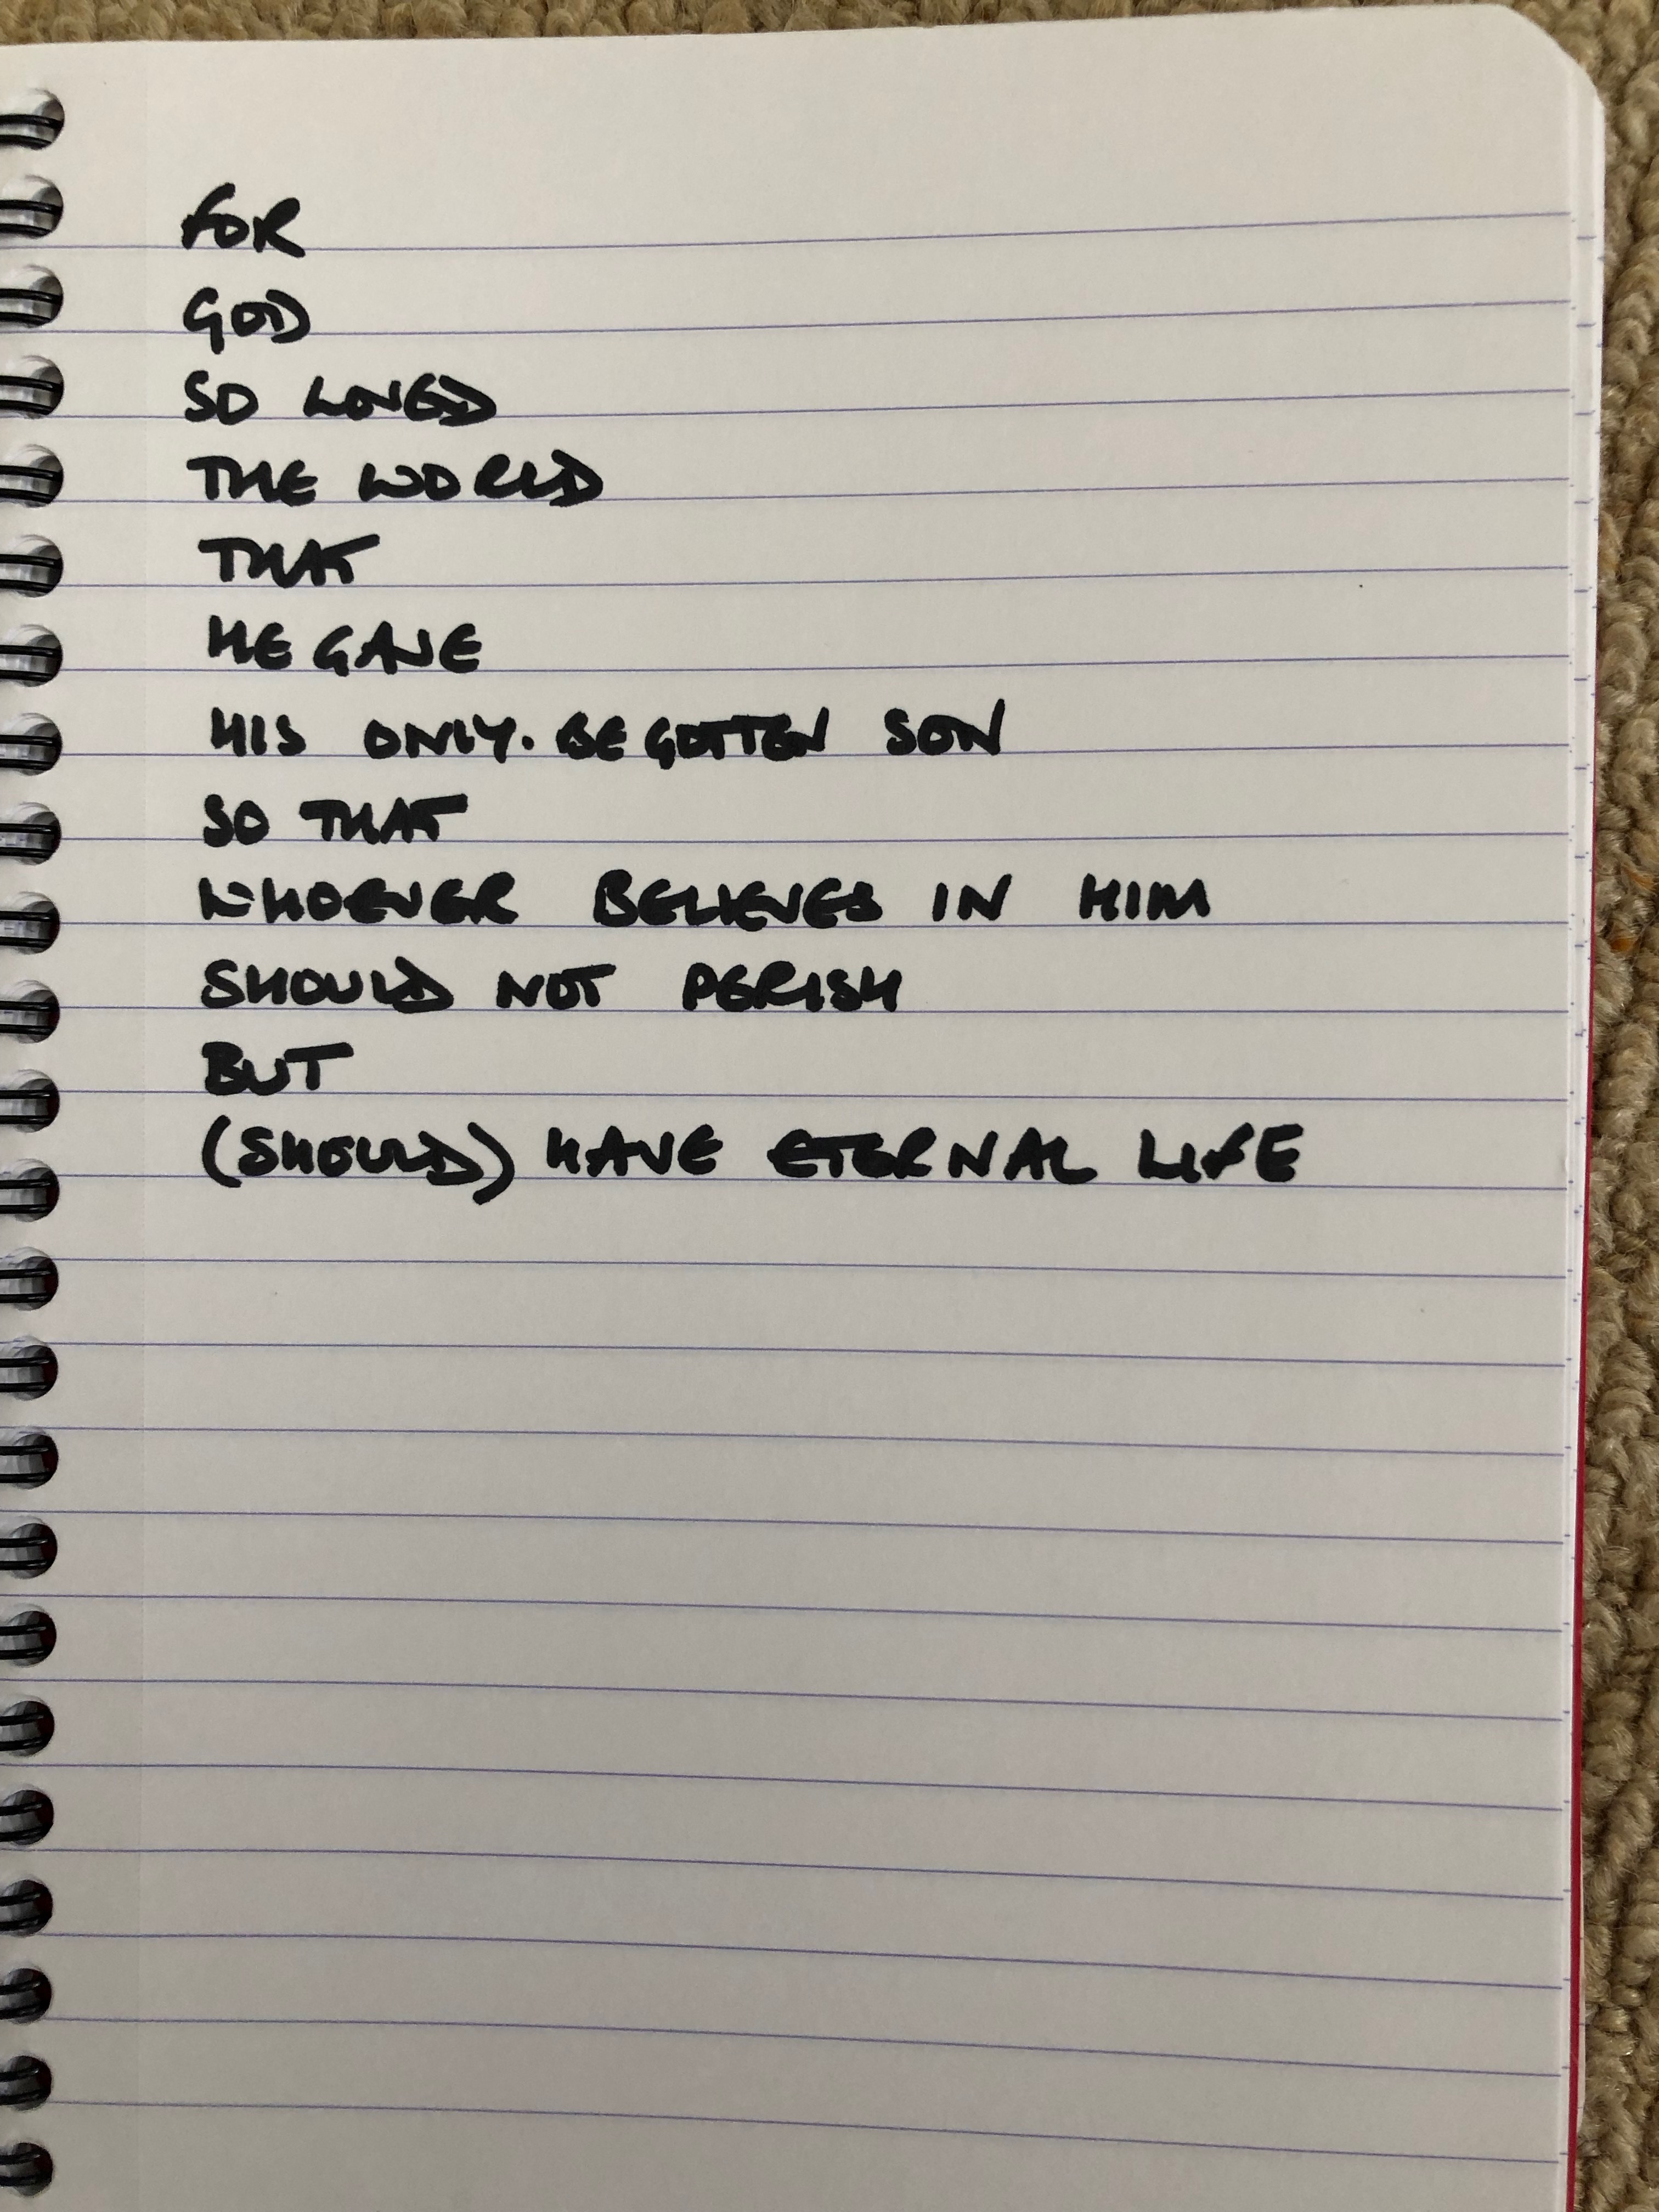 FOR
GOD
SO LOVED
THE WORLD
THAT
HE GAVE
HIS ONLY. BEGOTTEN SON
SO THAT
WHOEVER BELIEVES IN HIM
SHOULD NOT PERISH
BUT
(SHOULD) HAVE ETERNAL LIFE